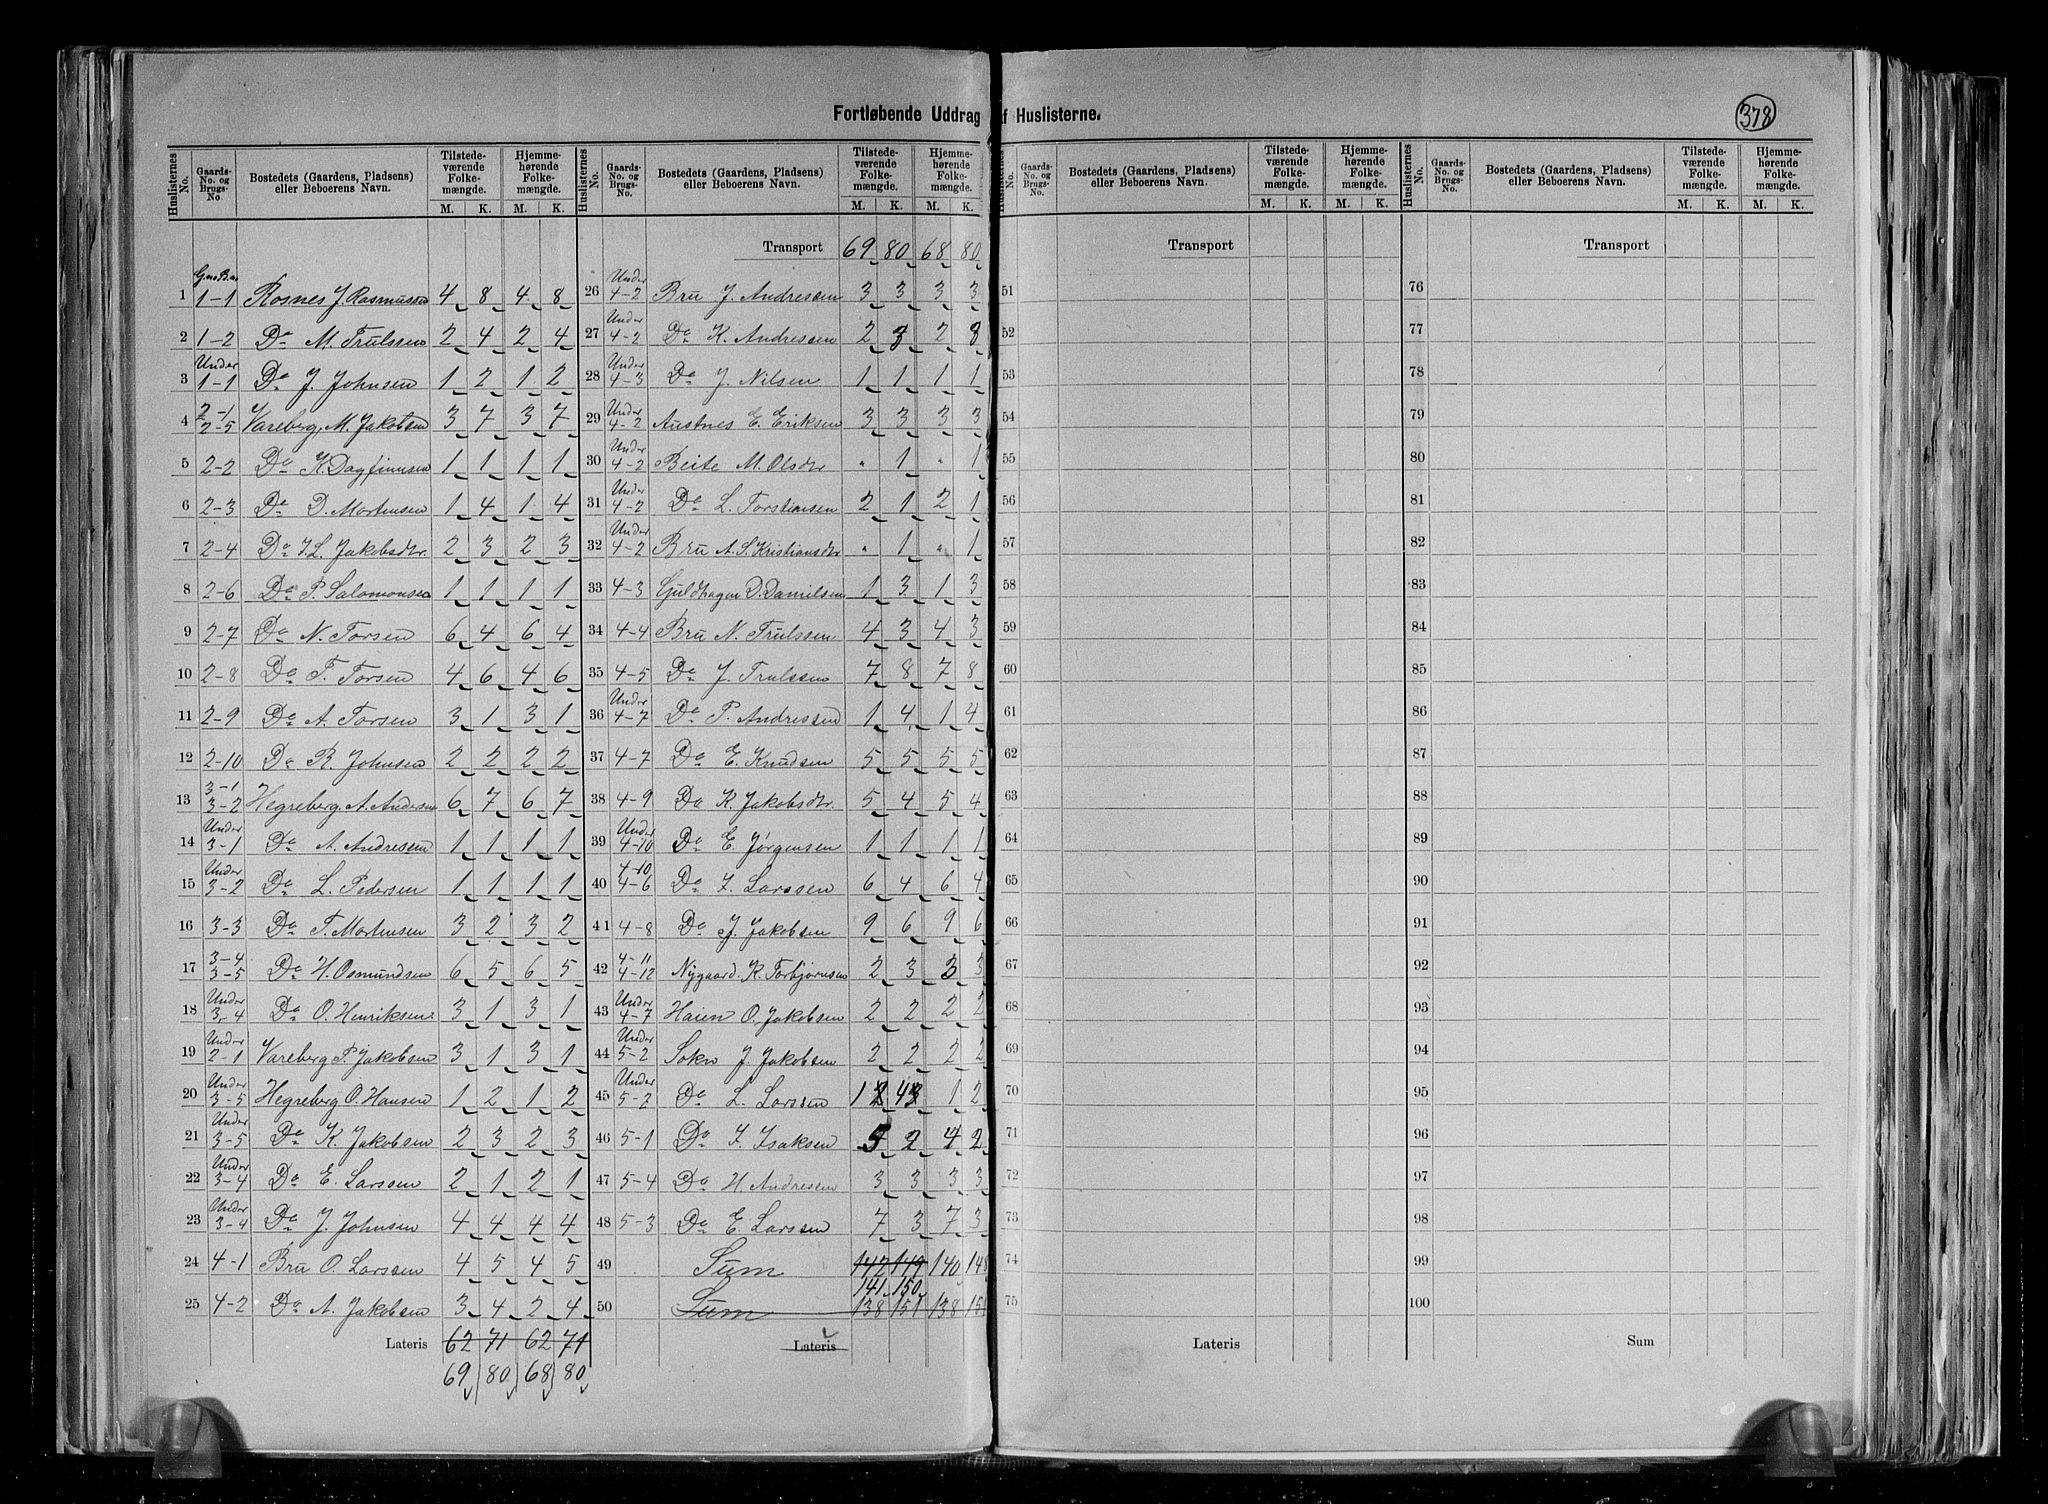 Fortløbende Uddrag af Huslisterne.
378
Huslisternes No. Gaards-No. og Brugs-No. Bostedets (Gaardens, Pladsens) eller Beboerens Navn. Tilstedeværende Folkemængde. M. K. Hjemmehørende Folkemængde. M. K.
Gno B.no
1 1-1 Rosnes J. Rasmussen 4 8 4 8
2 1-2 Do M. Trulssen 2 4 2 4
3 Under 1-1 Do J. Johnsen 1 2 1 2
4 2-1 2-5 Vareberg, M. Jakobsen 3 7 3 7
5 2-2 Do K. Dagfinnsen 1 1 1 1
6 2-3 Do D. Mortensen 1 4 1 4
7 2-4 Do I. L. Jakobsdtr. 2 3 2 3
8 2-6 Do P. Salomonsen 1 1 1 1
9 2-7 Do N. Torsen 6 4 6 4
10 2-8 Do T. Torsen 4 6 4 6
11 2-9 Do A. Torsen 3 1 3 1
12 2-10 Do R. Johnsen 2 2 2 2
13 3-1 3-2 Hegreberg, A. Andersen 6 7 6 7
14 Under 3-1 Do A. Andresen 1 1 1 1
15 Under 3-2 Do L. Pedersen 1 1 1 1
16 3-3 Do T. Mortensen 3 2 3 2
17 3-4 3-5 Do H. Osmundsen 6 5 6 5
18 Under 3-4 Do O. Henriksen 3 1 3 1
19 Under 2-1 Vareberg P. Jakobsen 3 1 3 1
20 Under 3-5 Hegreberg O. Hansen 1 2 1 2
21 Under 3-5 Do K. Jakobsen 2 3 2 3
22 Under 3-4 Do E. Larssen 2 1 2 1
23 Under 3-4 Do J. Johnsen 4 4 4 4
24 4-1 Bru O. Larssen 4 5 4 5
25 4-2 Do A. Jakobsen 3 4 2 4
Lateris 62 71 62 71
69 80 68 80
Huslisternes No. Gaards-No. og Brugs-No. Bostedets (Gaardens, Pladsens) eller Beboerens Navn. Tilstedeværende Folkemængde. M. K. Hjemmehørende Folkemængde. M. K.
Transport 69 80 68 80
26 Under 4-2 Bru J. Andressen 3 3 3 3
27 Under 4-2 Do K. Andressen 2 3 2 3
28 Under 4-3 Do J. Nilsen 1 1 1 1
29 Under 4-2 Austnes E. Eriksen 3 3 3 3
30 Under 4-2 Beite M. Olsdtr " 1 " 1
31 Under 4-2 Do L. Torstensen 2 1 2 1
32 Under 4-2 Bru A. S. Kristiansdtr " 1 " 1
33 4-3 Guldhagen D. Danielsen 1 3 1 3
34 4-4 Bru N. Trulssen 4 3 4 3
35 4-5 Do J. Trulssen 7 8 7 8
36 Under 4-7 Do P. Andressen 1 4 1 4
37 4-7 Do E. Knudsen 5 5 5 5
38 4-9 Do K. Jakobsdtr. 5 4 5 4
39 Under 4-10 Do E. Jörgensen 1 1 1 1
40 4-10 4-6 Do I. Larssen 6 4 6 4
41 4-8 Do J. Jakobsen 9 6 9 6
42 4-11 4-12 Nygaard. K. Torbjörnsen 2 3 3 3
43 Under 4-7 Haien O. Jakobsen 2 2 2 2
44 Under 5-2 Sokn J. Jakobsen 2 2 2 2
45 Under 5-2 Do L. Larssen 1 3 1 2
46 5-1 Do I. Isaksen 5 2 4 2
47 5-4 Do H. Andresen 3 3 3 3
48 5-3 Do E. Larssen 7 3 7 3
49 Sum 142 149 140 148
141 150
50 Sum 138 151 138 151
Lateris
Huslisternes No. Gaards-No. og Brugs-No. Bostedets (Gaardens, Pladsens) eller Beboerens Navn. Tilstedeværende Folkemængde. M. K. Hjemmehørende Folkemængde. M. K.
Transport
51
52
53
54
55
56
57
58
59
60
61
62
63
64
65
66
67
68
69
70
71
72
73
74
75
Lateris
Huslisternes No. Gaards-No. og Brugs-No. Bostedets (Gaardens, Pladsens) eller Beboerens Navn. Tilstedeværende Folkemængde. M. K. Hjemmehørende Folkemængde. M. K.
Transport
76
77
78
79
80
81
82
83
84
85
86
87
88
89
90
91
92
93
94
95
96
97
98
99
100
Sum